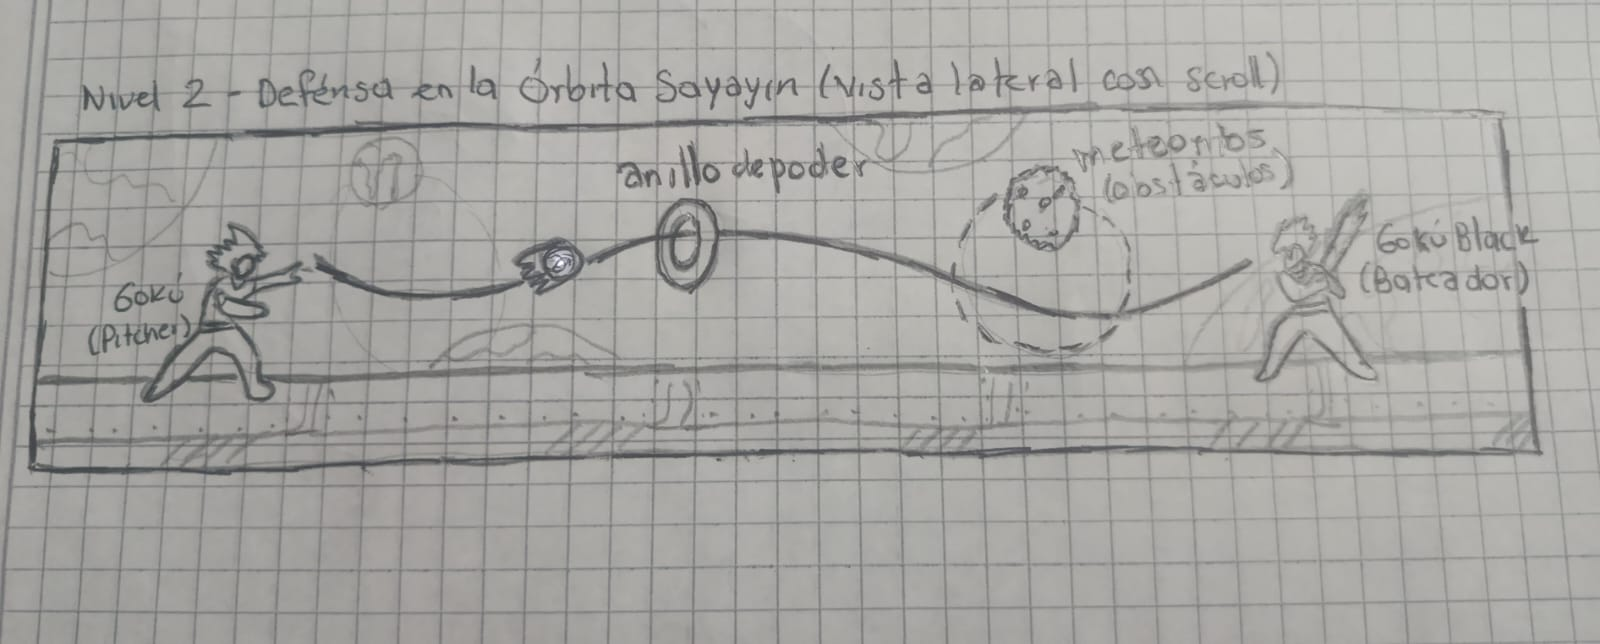 Nivel 2 - Defénsa en la Órbita Sayayin (vista lateral con scroll)
anillo de poder
meteoritos
(obstáculos)
Gokú
(Pitcher)
Gokú Black
(Bateador)